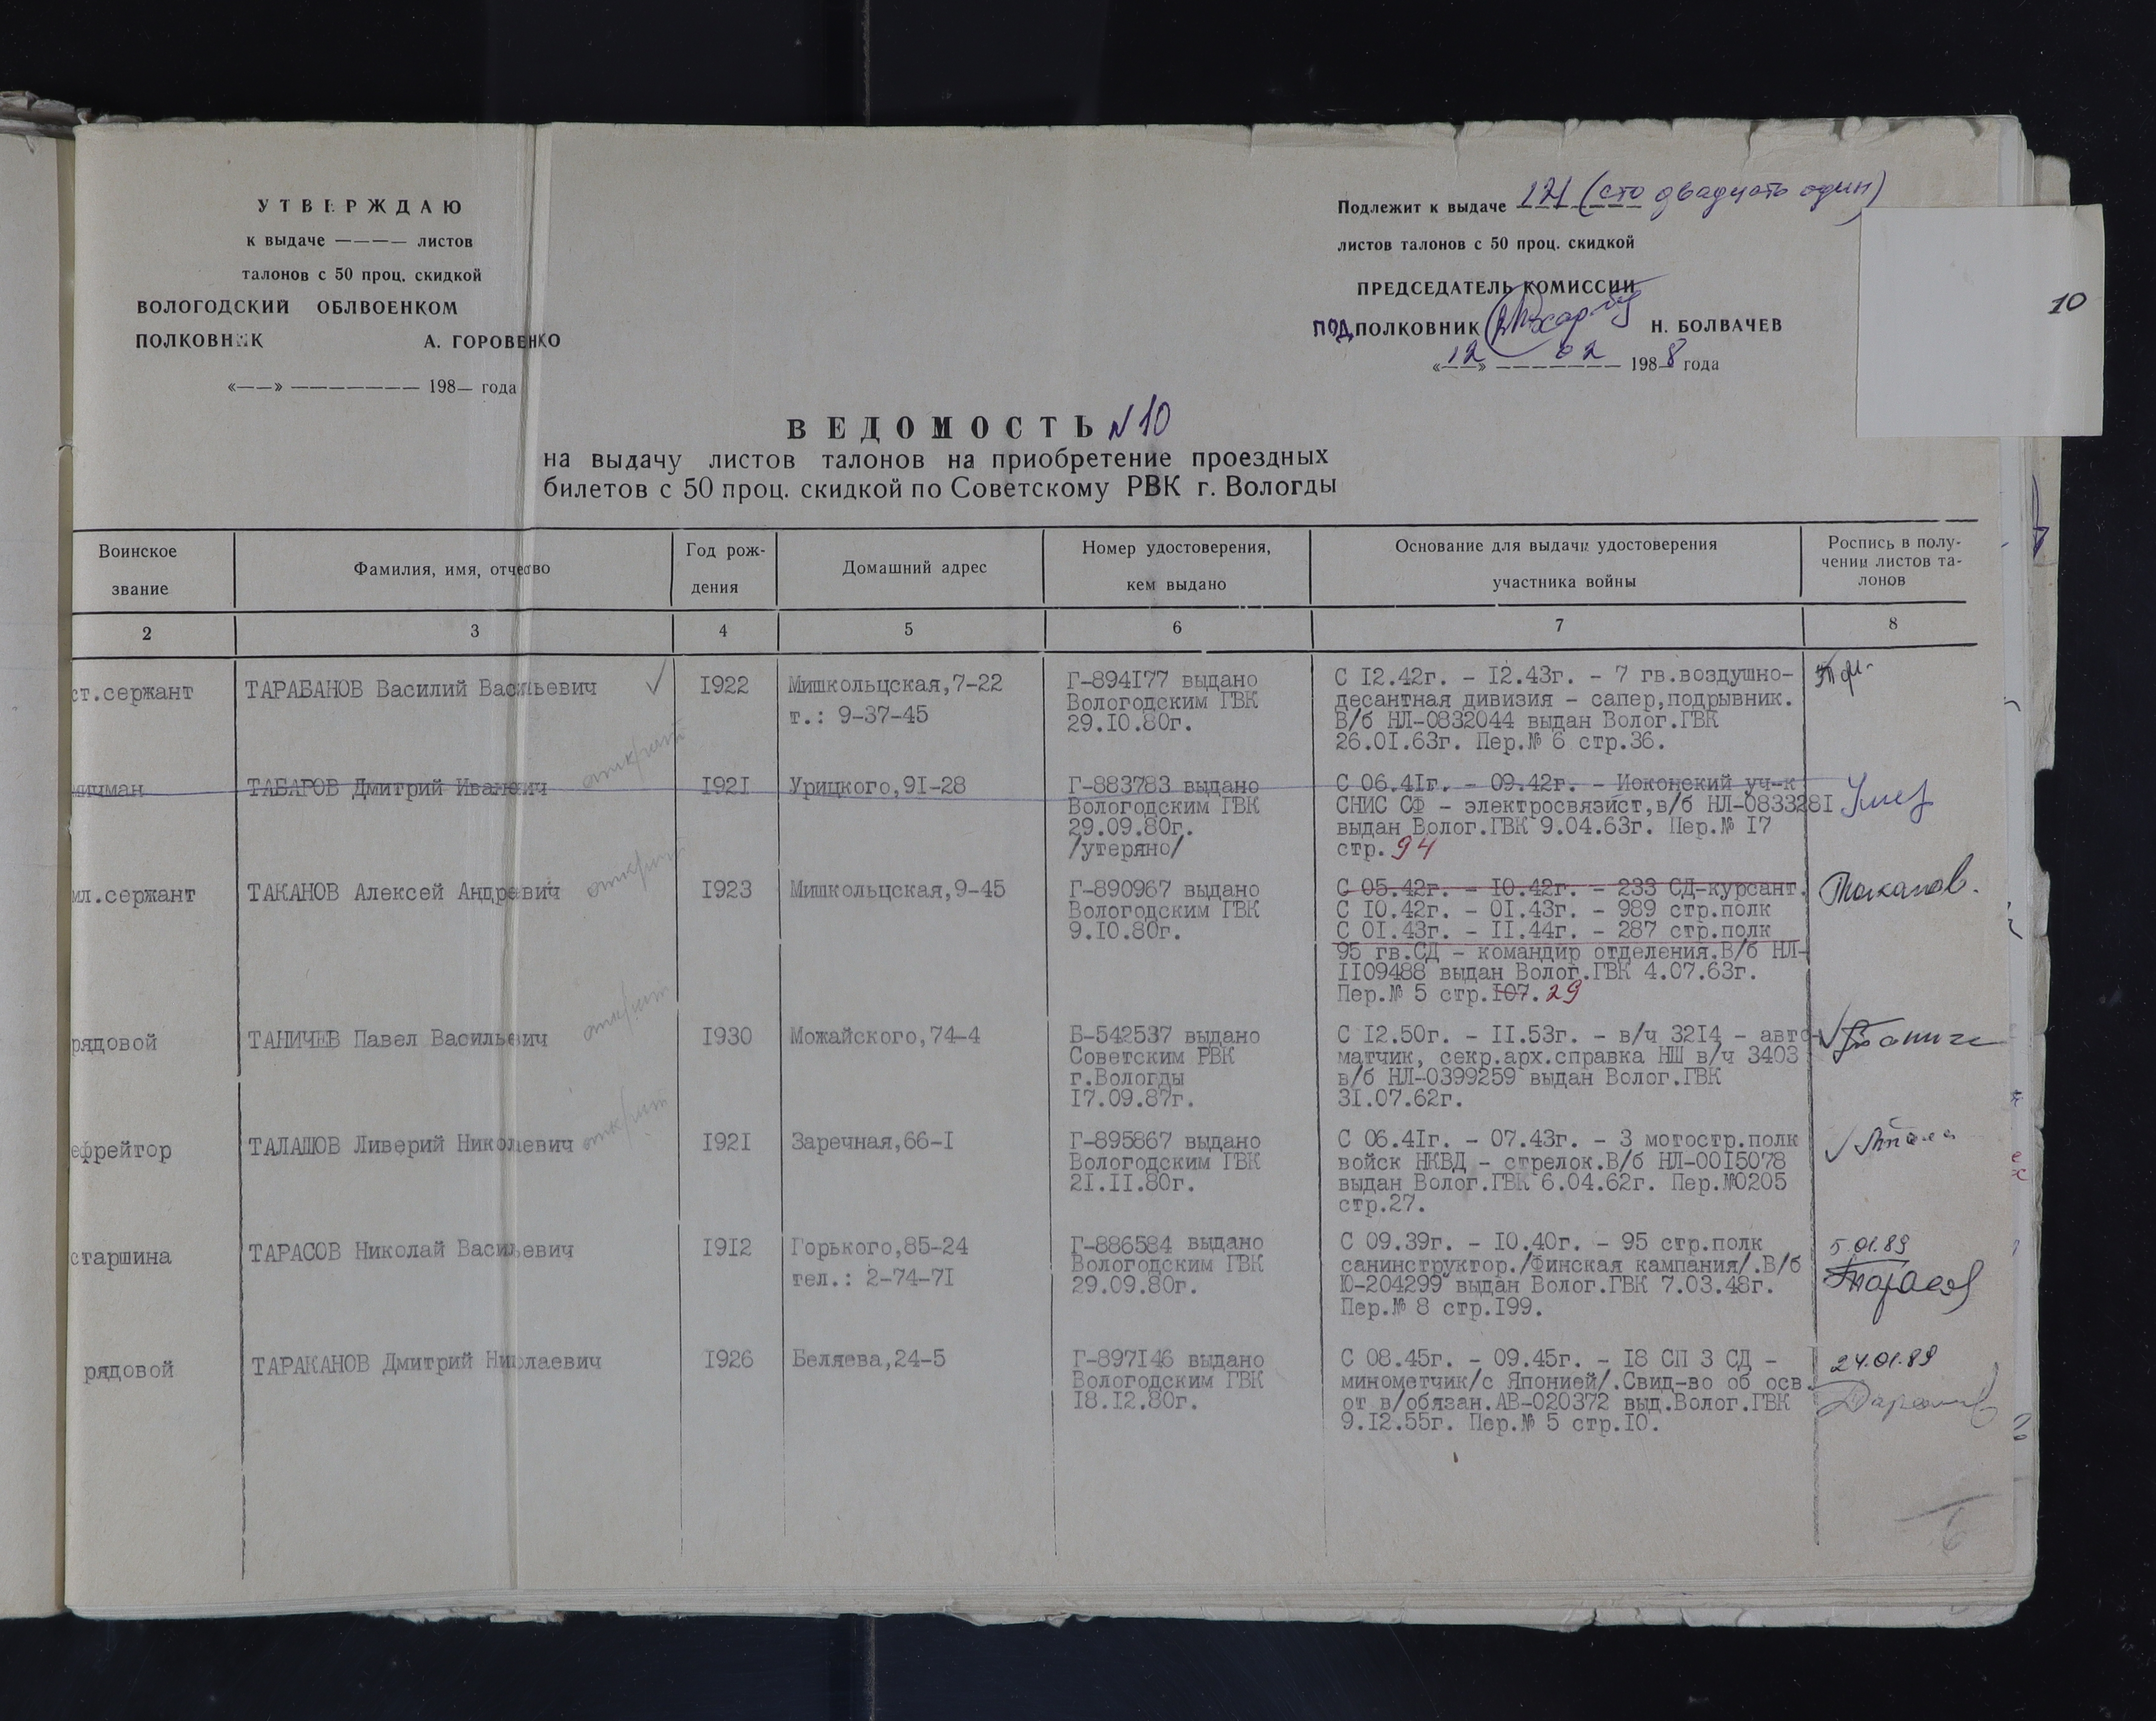 УТВЕРЖДАЮ
к выдаче ———— листов
талонов с 50 проц. скидкой
ВОЛОГОДСКИЙ ОБЛВОЕНКОМ
ПОЛКОВНИК А. ГОРОВЕНКО
«——» ——————— 198— года
Подлежит к выдаче 121 (сто двадцать один)
листов талонов с 50 проц. скидкой
ПРЕДСЕДАТЕЛЬ КОМИССИИ
ПОДПОЛКОВНИК Н. БОЛВАЧЕВ
«12» 02 1988 года
10
ВЕДОМОСТЬ №10
на выдачу листов талонов на приобретение проездных
билетов с 50 проц. скидкой по Советскому РВК г. Вологды
Воинское
звание
Фамилия, имя, отчество
Год рож-
дения
Домашний адрес
Номер удостоверения,
кем выдано
Основание для выдачи удостоверения
участника войны
Роспись в полу-
чении листов та-
лонов
2 3 4 5 6 7 8
ст.сержант
ТАРАБАНОВ Василий Васильевич
I922
Мишкольцская,7-22
т.: 9-37-45
Г-894I77 выдано
Вологодским ГВК
29.I0.80г.
С I2.42г. - I2.43г. - 7 гв.воздушно-
десантная дивизия - сапер,подрывник.
В/б НЛ-0832044 выдан Волог.ГВК
26.0I.63г. Пер.№ 6 стр.36.
мичман
ТАБАРОВ Дмитрий Иванович
I92I
Урицкого,9I-28
Г-883783 выдано
Вологодским ГВК
29.09.80г.
/утеряно/
С 06.4Iг. - 09.42г. - Иоконский уч-к
СНИС СФ - электросвязист,в/б НЛ-083328I
выдан Волог.ГВК 9.04.63г. Пер.№ I7
стр.94
мл.сержант
ТАКАНОВ Алексей Андревич
I923
Мишкольцская,9-45
Г-890967 выдано
Вологодским ГВК
9.I0.80г.
С 05.42г. - I0.42г. - 233 СД-курсант.
С I0.42г. - 0I.43г. - 989 стр.полк
С 0I.43г. - II.44г. - 287 стр.полк
95 гв.СД - командир отделения.В/б НЛ-
II09488 выдан Волог.ГВК 4.07.63г.
Пер.№ 5 стр.I07.29
Таканов.
рядовой
ТАНИЧЕВ Павел Васильевич
I930
Можайского,74-4
Б-542537 выдано
Советским РВК
г.Вологды
I7.09.87г.
С I2.50г. - II.53г. - в/ч 32I4 - авто-
матчик, секр.арх.справка НШ в/ч 3403
в/б НЛ-0399259 выдан Волог.ГВК
3I.07.62г.
ефрейтор
ТАЛАШОВ Ливерий Николаевич
I92I
Заречная,66-I
Г-895867 выдано
Вологодским ГВК
2I.II.80г.
С 06.4Iг. - 07.43г. - 3 мотостр.полк
войск НКВД - стрелок.В/б НЛ-00I5078
выдан Волог.ГВК 6.04.62г. Пер.№0205
стр.27.
старшина
ТАРАСОВ Николай Васильевич
I9I2
Горького,85-24
тел.: 2-74-7I
Г-886584 выдано
Вологодским ГВК
29.09.80г.
С 09.39г. - I0.40г. - 95 стр.полк
санинструктор./Финская кампания/.В/б
Ю-204299 выдан Волог.ГВК 7.03.48г.
Пер.№ 8 стр.I99.
5.01.89
Тарасов
рядовой
ТАРАКАНОВ Дмитрий Николаевич
I926
Беляева,24-5
Г-897I46 выдано
Вологодским ГВК
I8.I2.80г.
С 08.45г. - 09.45г. - I8 СП 3 СД -
минометчик/с Японией/.Свид-во об осв.
от в/обязан.АВ-020372 выд.Волог.ГВК
9.I2.55г. Пер.№ 5 стр.I0.
24.01.89